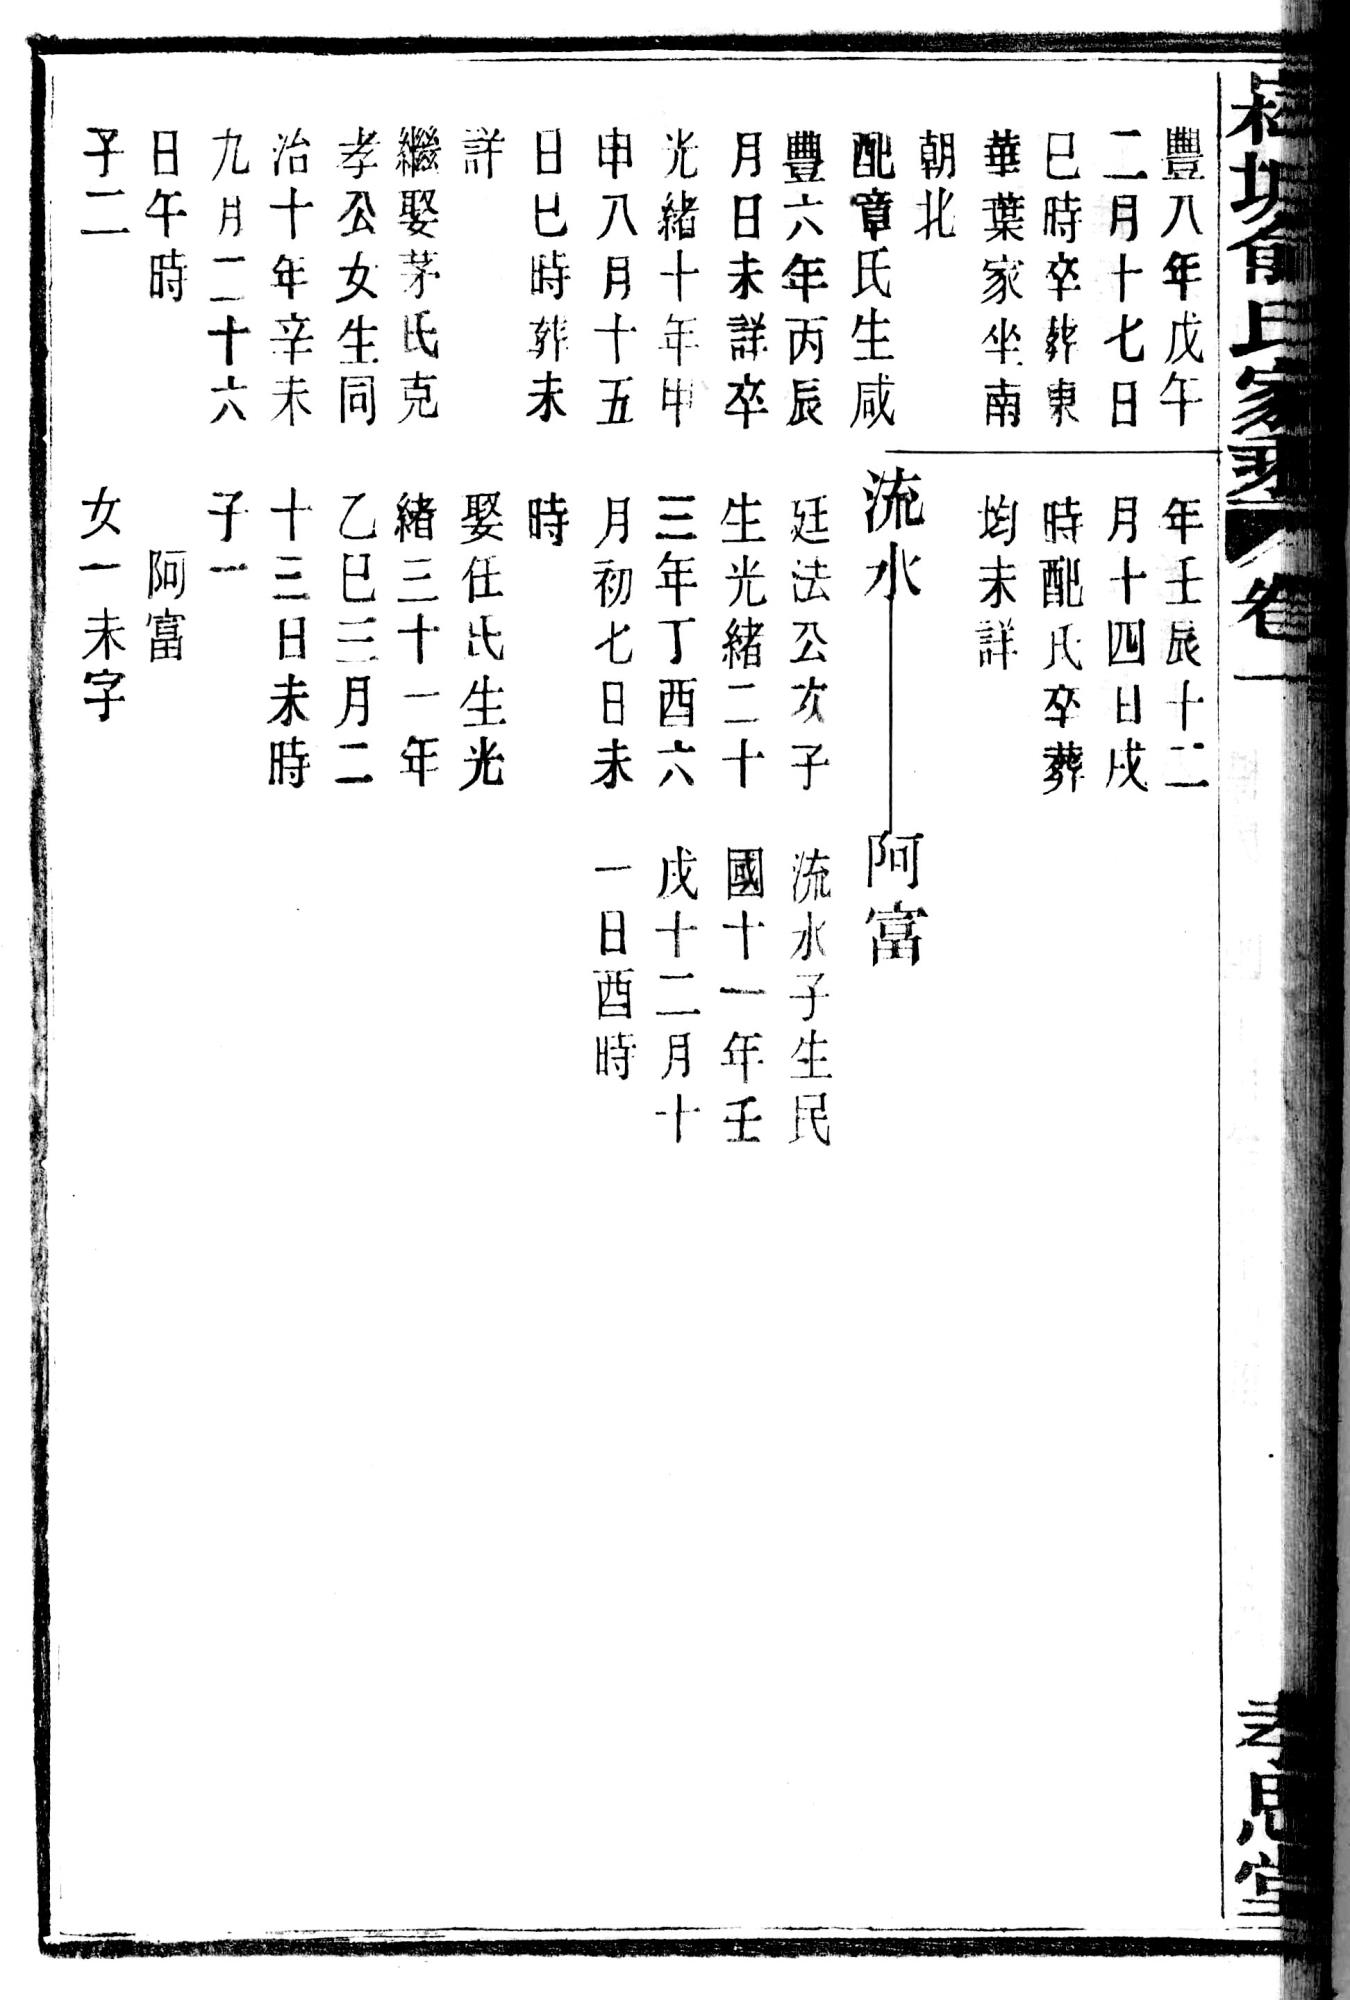 俞氏家乘
卷一
孝思堂
豐八年戊午
二月十七日
巳時卒葬東
華葉家坐南
朝北
配章氏生咸
豐六年丙辰
月日未詳卒
光緒十年甲
申八月十五
日巳時葬未
詳
繼娶茅氏克
孝公女生同
治十年辛未
九月二十六
日午時
子二
年壬辰十二
月十四日戌
時配氏卒葬
均未詳
流水
廷法公次子
生光緒二十
三年丁酉六
月初七日未
時
娶任氏生光
緒三十一年
乙巳三月二
十三日未時
子一
阿富
女一未字
阿富
流水子生民
國十一年壬
戌十二月十
一日酉時